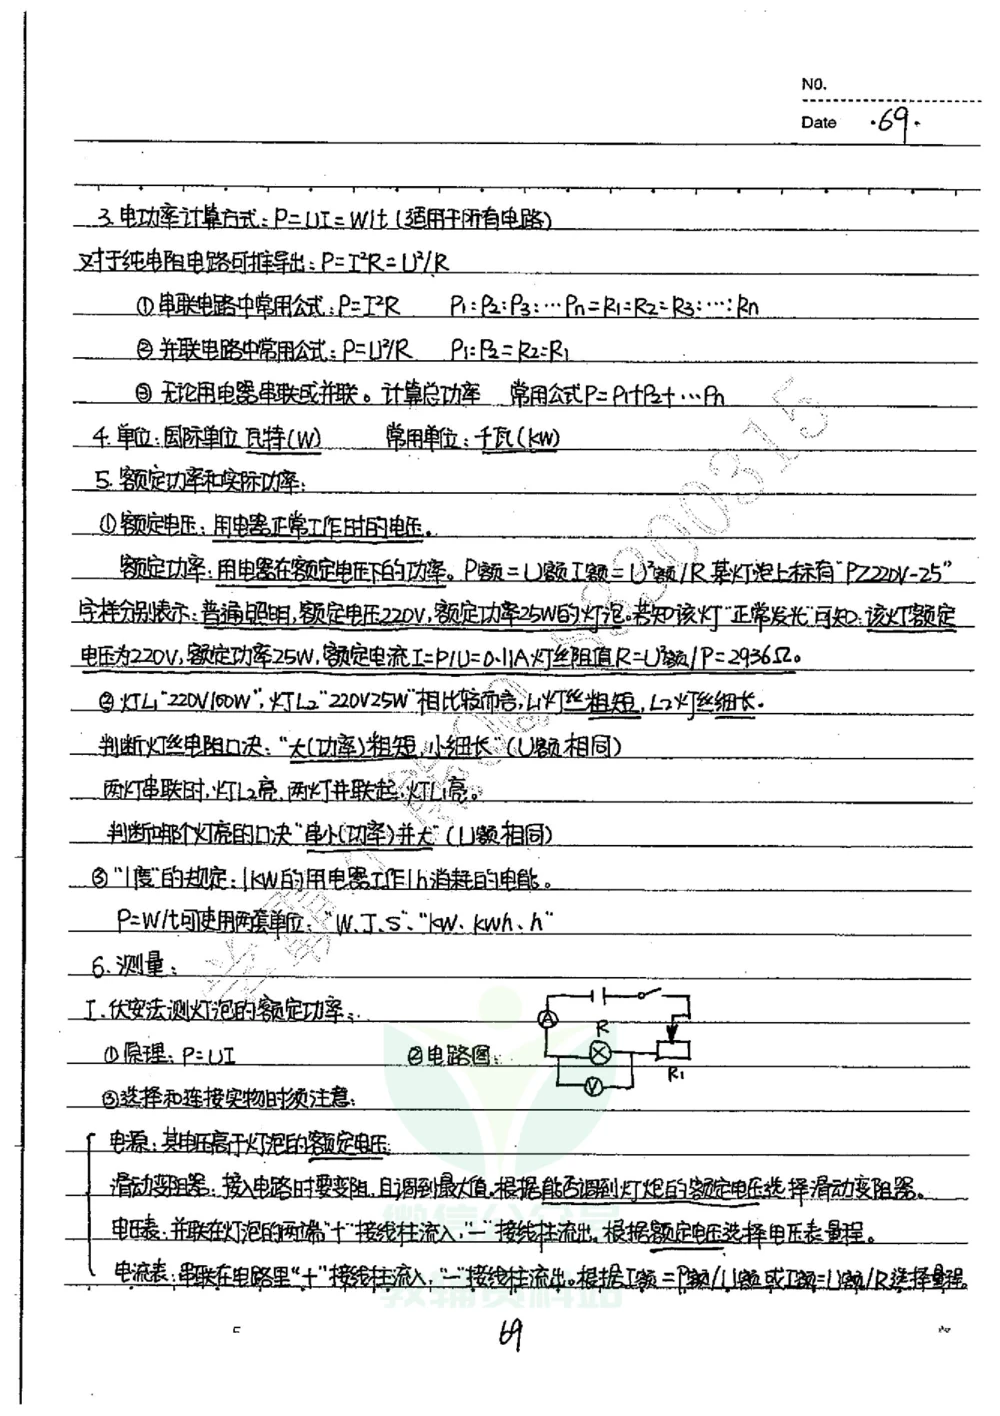 NO.
Date ·69·
3.电功率计算方式:P=UI=W/t(适用于所有电路)
对于纯电阻电路可推导出:P=I²R=U²/R
①串联电路中常用公式:P=I²R P₁:P₂:P₃:…Pn=R₁=R₂=R₃:…:Rn
②并联电路中常用公式:P=U²/R P₁:P₂=R₂=R₁
③无论用电器串联或并联。计算总功率 常用公式P=P₁+P₂+…Pn
4.单位:国际单位瓦特(W) 常用单位:千瓦(kW)
5.额定功率和实际功率:
①额定电压:用电器正常工作时的电压。
额定功率:用电器在额定电压下的功率。P额=U额I额=U²额/R 某灯泡上标有“PZ220V-25”
字样分别表示:普通照明,额定电压220V,额定功率25W的灯泡。若知该灯“正常发光”可知:该灯额定
电压为220V,额定功率25W,额定电流I=P/U=0.11A灯丝阻值R=U²额/P=2936Ω。
②灯L₁“220V100W”,灯L₂“220V25W”相比较而言,L₁灯丝粗短,L₂灯丝细长。
判断灯丝电阻口决:“大(功率)粗短,小细长”(U额相同)
两灯串联时,灯L₂亮,两灯并联起,灯L₁亮。
判断哪个灯亮的口决“串小(功率)并大”(U额相同)
③“1度”的规定:1KW的用电器工作1h消耗的电能。
P=W/t可使用两套单位:“W、J、S”、“kW、kwh、h”
6.测量:
I.伏安法测灯泡的额定功率:
A
R
①原理:P=UI ②电路图:
V
R₁
③选择和连接实物时须注意:
电源:其电压高于灯泡的额定电压
滑动变阻器:接入电路时要变阻,且调到最大值。根据能否调到灯炮的额定电压选择滑动变阻器。
电压表:并联在灯泡的两端“十”接线柱流入,“一”接线柱流出。根据额定电压选择电压表量程。
电流表:串联在电路里“十”接线柱流入,“一”接线柱流出。根据I额=P额/U额或I额=U额/R选择量程。
教辅资料站
69